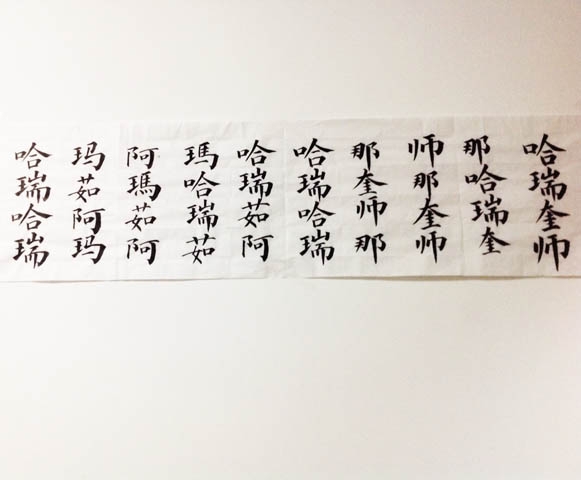 哈瑞奎师
那哈瑞奎
师那奎师
那奎师那
哈瑞哈瑞
哈瑞茹阿
瑪哈瑞茹
阿瑪茹阿
玛茹阿玛
哈瑞哈瑞